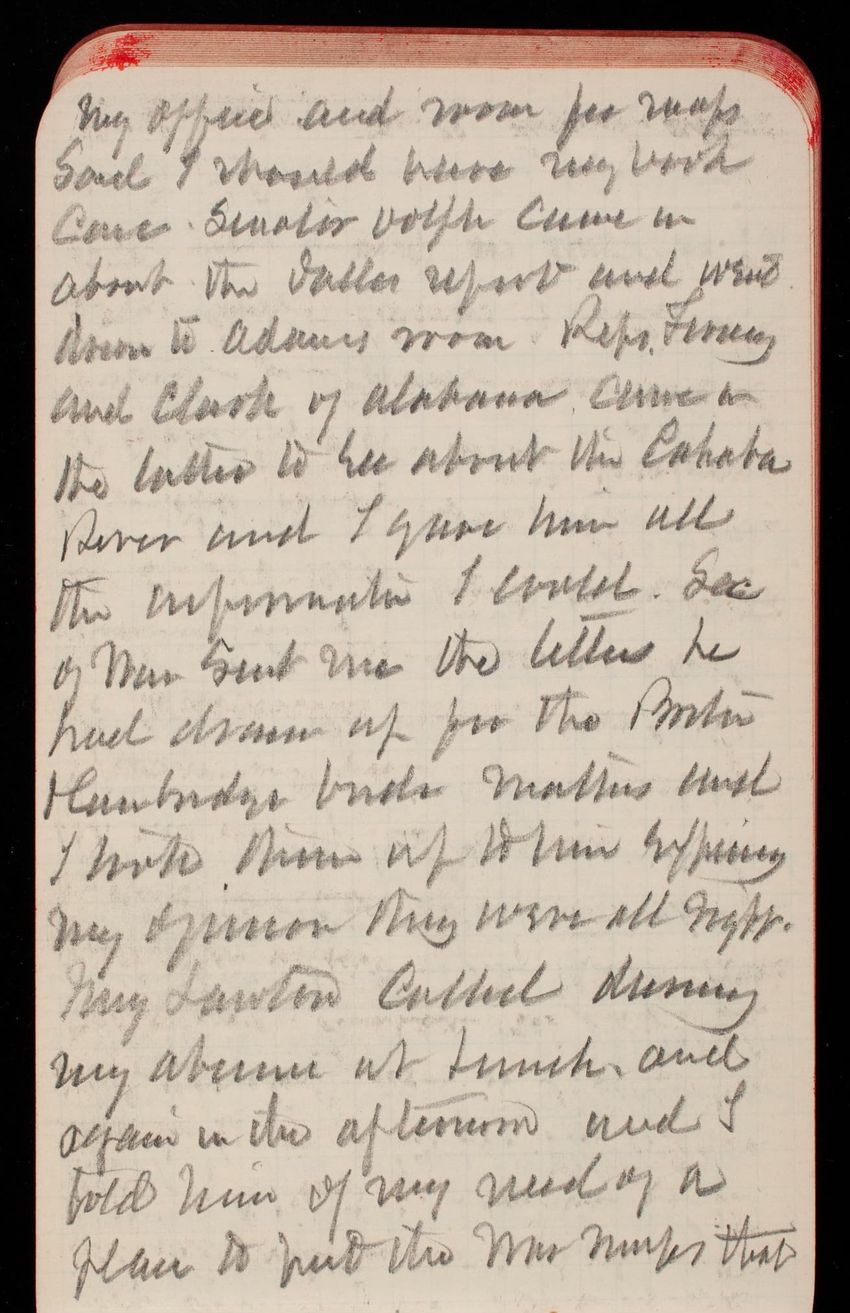 my office and room for maps
Said I should have my book
Case. Senator Dolph came in
about the Dalles report and went
down to Adams room. Reps. Forney
and Clark of Alabama came in
the latter to see about the Cahaba
River and I gave him all
the information I could. Sec
of War sent me the letters he
had drawn up for the Boston
& Cambridge bridge matters and
I wrote them up to him
my opinion they were all right.
Maj Lawton called during
my absence at lunch, and
again in the afternoon and I
told him of my need of a
place to put the War maps that